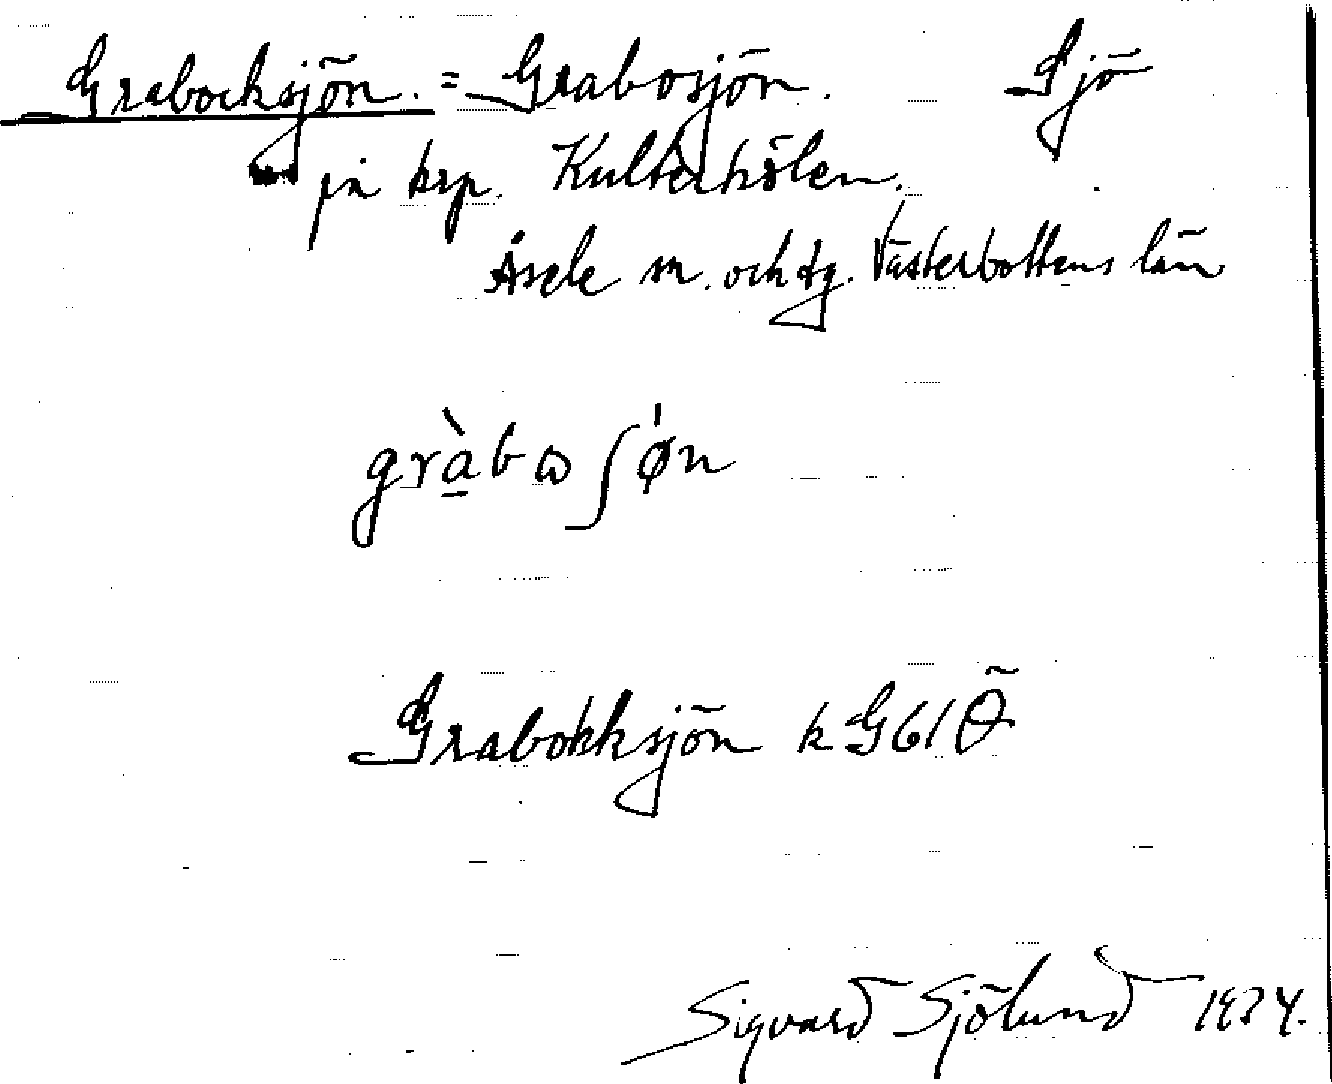 Grabocksjön. = Grabosjön. Sjö
på krp. Kulterhölen.
Åsele sn. och tg. Västerbottens län
gràbωʃøn
Grabokksjön k G61Ö
Sigvard Sjölund 1934.